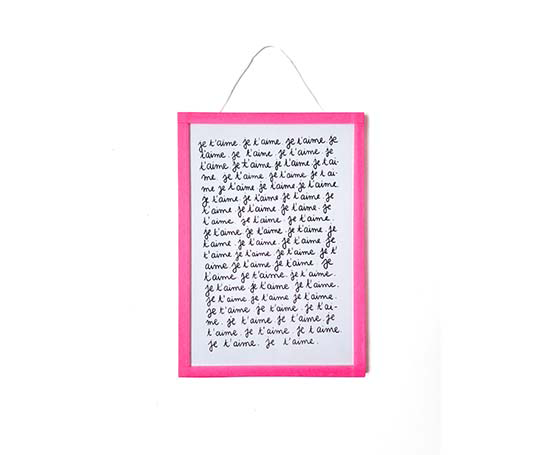 je t'aime je t'aime je t'aime je
t'aime. je t'aime je t'aime. je
t'aime je t'aime je t'aime je t'ai-
me. je t'aime. je t'aime je t'ai-
me je t'aime je t'aime. je t'aime
je t'aime je t'aime je t'aime. je
t'aime. je t'aime. je t'aime. je
t'aime je t'aime je t'aime.
je t'aime je t'aime je t'aime. je
t'aime. je t'aime. je t'aime je
t'aime je t'aime je t'aime je t'
aime je t'aime je t'aime je
t'aime je t'aime. je t'aime.
je t'aime je t'aime je t'aime.
je t'aime je t'aime je t'aime.
je t'aime je t'aime. je t'ai-
me. je t'aime je t'aime. je
t'aime. je t'aime. je t'aime.
je t'aime. je t'aime.